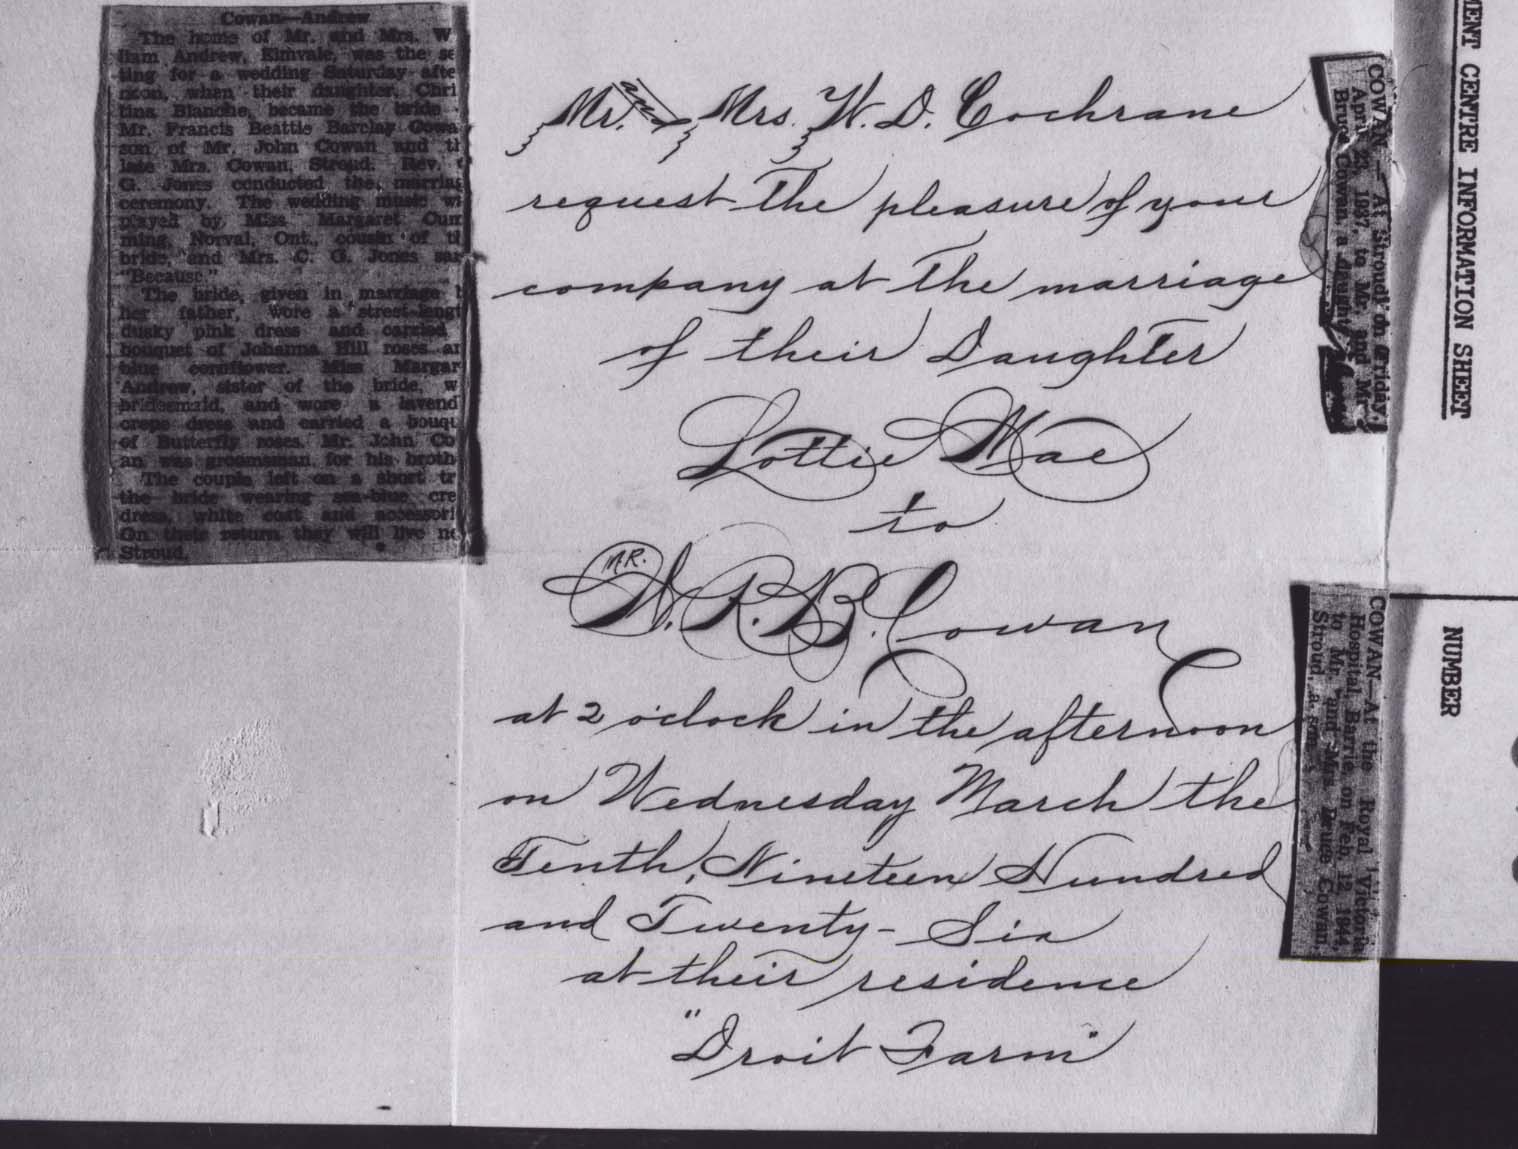 Cowan—Andrew
The home of Mr. and Mrs. W
liam Andrew, Elmvale, was the se
ting for a wedding Saturday afte
noon, when their daughter, Chri
tina Blanche, became the bride
Mr. Francis Beattie Barclay Cowa
son of Mr. John Cowan and th
late Mrs. Cowan, Stroud. Rev.
G. Jones conducted the marriag
ceremony. The wedding music w
played by Miss Margaret Cum
ming, Norval, Ont., cousin of th
bride, and Mrs. C. G. Jones san
"Because."
The bride, given in marriage
her father, wore a street-lengt
dusky pink dress and carried
bouquet of Johanna Hill roses an
blue cornflower. Miss Margar
Andrew, sister of the bride, w
bridesmaid, and wore a lavend
crepe dress and carried a bouqu
of Butterfly roses. Mr. John Co
an was groomsman for his broth
The couple left on a short tr
the bride wearing sea-blue cre
dress, white coat and accessori
On their return they will live ne
Stroud.
Mr. and Mrs. W. D. Cochrane
request the pleasure of your
company at the marriage
of their Daughter
Lottie Mae
to
MR. W. R. B. Cowan
at 2 o'clock in the afternoon
on Wednesday March the
Tenth, Nineteen Hundred
and Twenty-Six
at their residence
"Droit Farm"
COWAN — At Stroud, on Friday,
April 23, 1937, to Mr. and Mrs.
Bruce Cowan, a daughter
COWAN—At the Royal Victoria
Hospital, Barrie, on Feb. 12, 1944,
to Mr. and Mrs. Bruce Cowan,
Stroud, a son.
MENT CENTRE INFORMATION SHEET
NUMBER